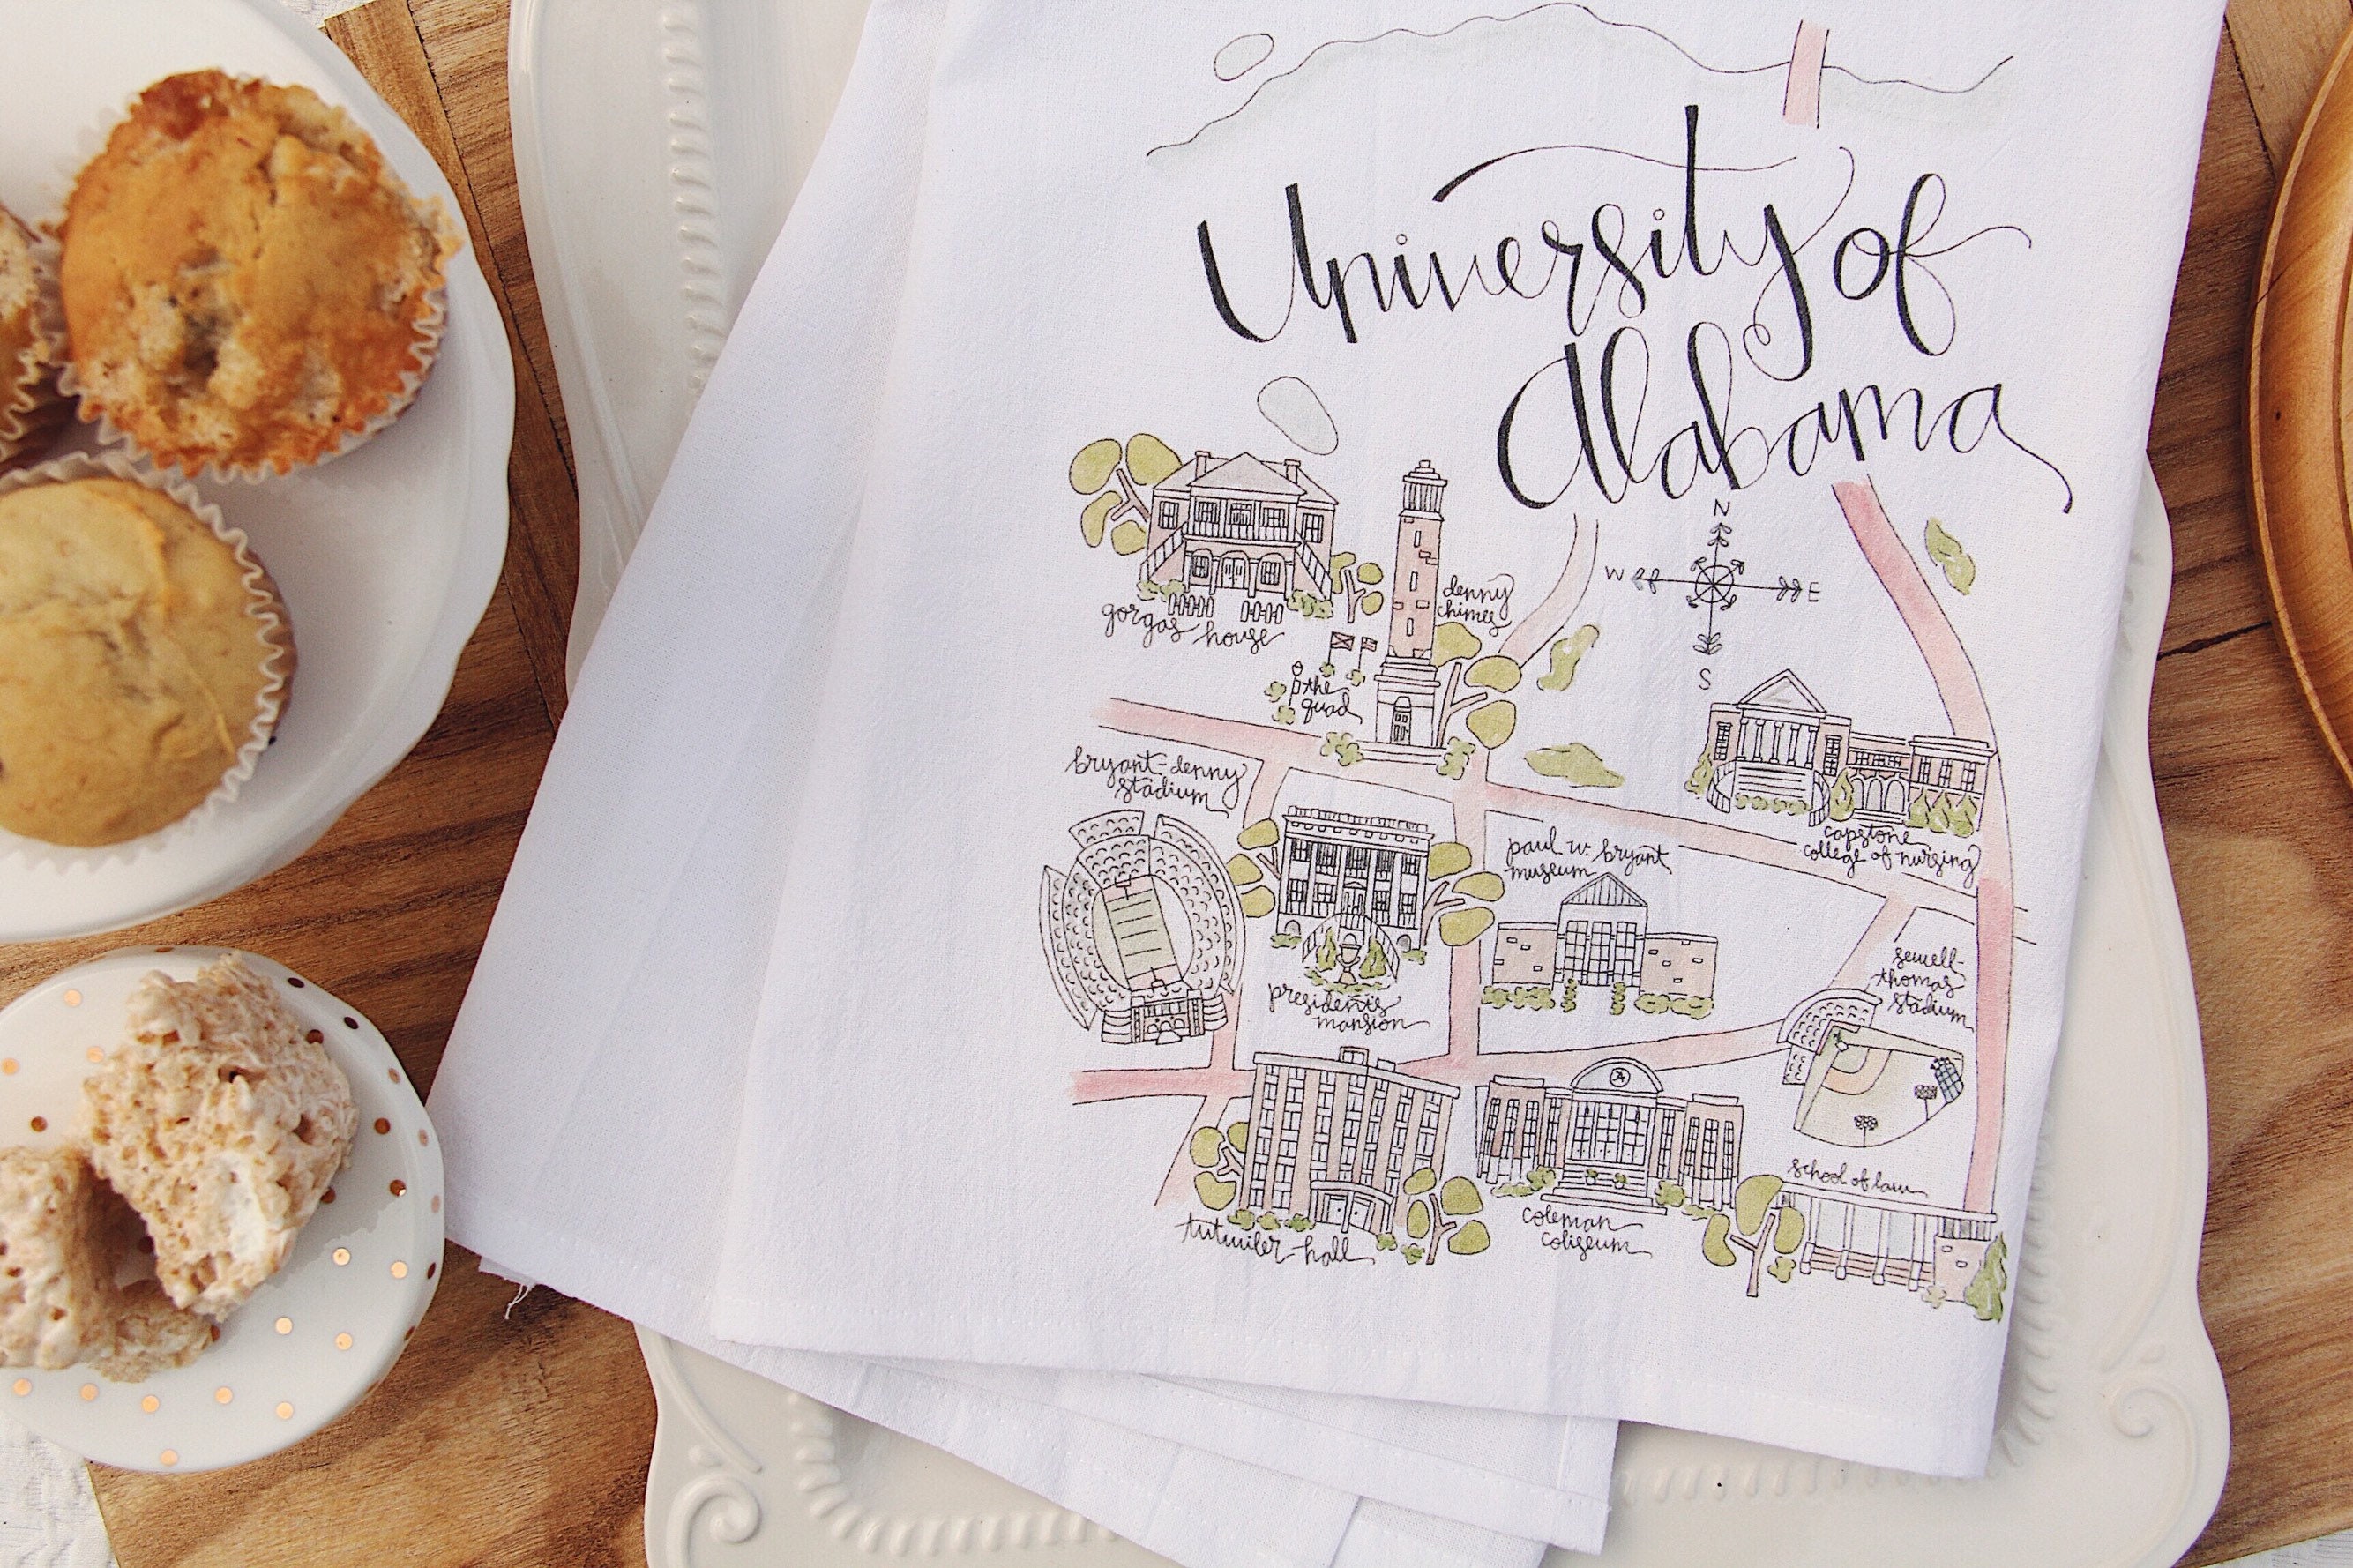 University of
Alabama
N
W
E
S
gorgas house
denny
chimes
the
quad
bryant-denny
stadium
capstone
college of nursing
paul w. bryant
museum
president's
mansion
sewell-
thomas
stadium
school of law
tutwiler hall
coleman
coliseum
A